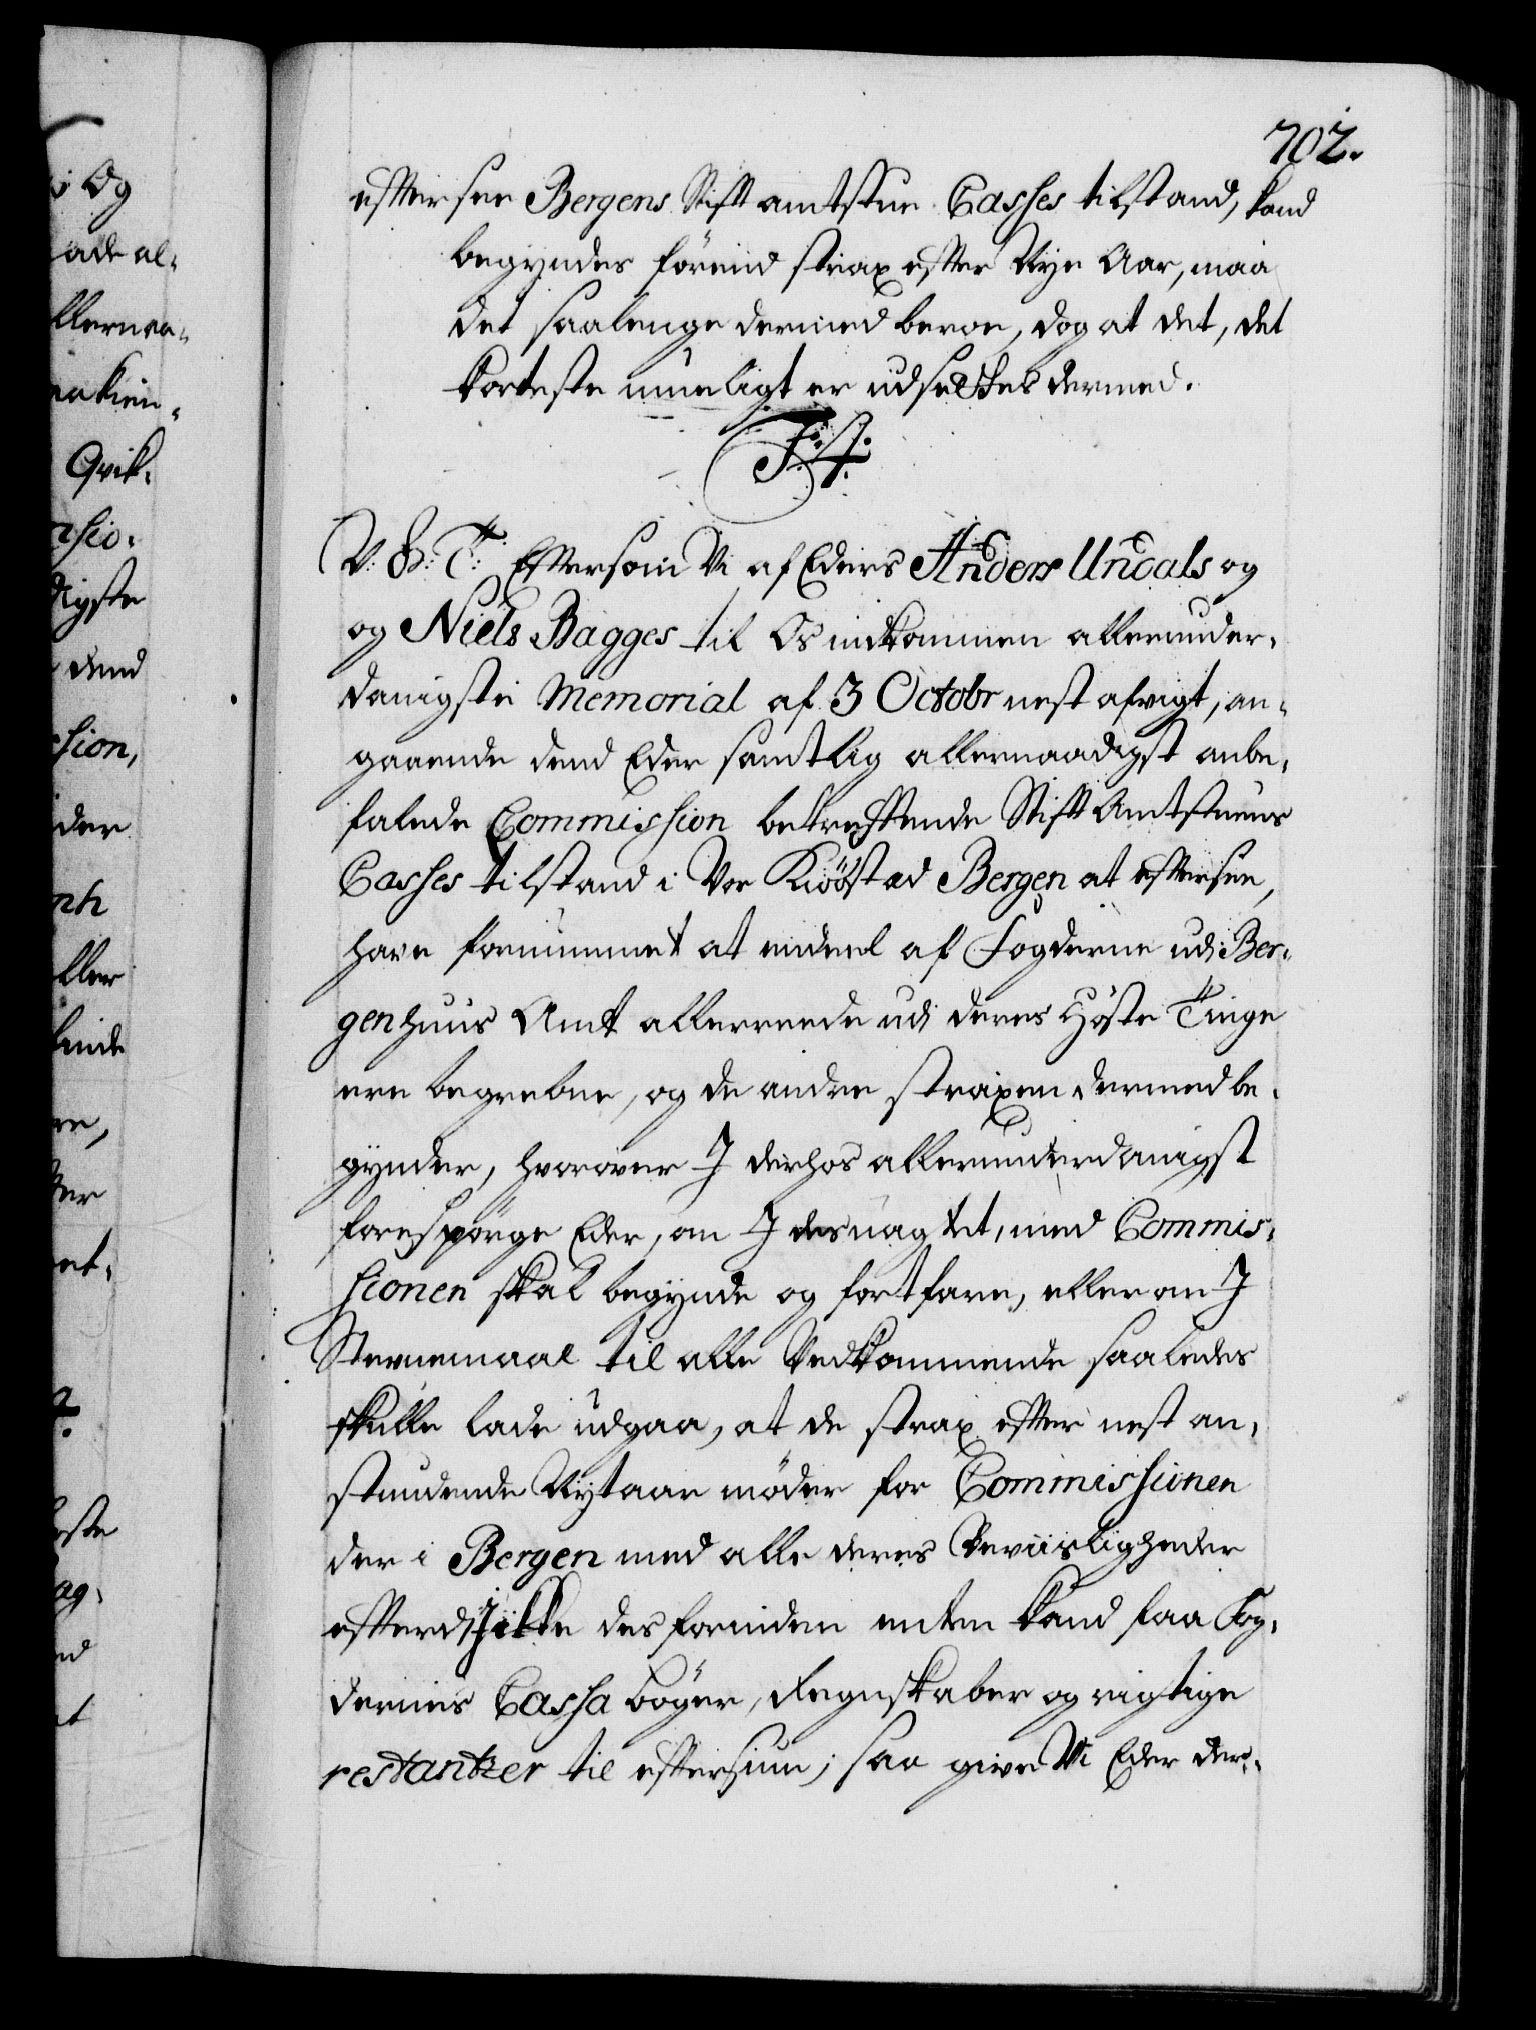 702.
efftersee Bergens Stifft amtstue Casses tilstand, kand
begyndes förend strax effter Nye Aar, maa
det saalenge dermed beroe, dog at det, det
korteste mueligt er udsættes dermed.
F: 4.
V: G: T: Eftersom Vi af Eders Anders Undals og
og Niels Bagges til Os indkommen allerunder-
danigste Memorial af 3 Octobr nest afvigt, an-
gaaende dend Eder samtlig allernaadigst anbe-
falede Commission betreffende Stifft Amtstuens
Casses tilstand i Vor Kiöbstad Bergen at efftersee,
have fornummet at endeel af Fogderne udi Ber-
genhuus Amt allerreede udi deres Höste Tinge
ere begrebne, og de andre straxen dermed be-
gynder, hvorover I derhos allerunderdanigst
forespörge Eder, om I desuagtet, med Commis-
sionen skal begynde og fortfare, eller om I
Stevnemaal til alle Vedkommende saaledes
skulle lade udgaa, at de strax effter nest an-
stundende Nytaar möder for Commissionen
der i Bergen med alle deres Beviisligheder
efterdi I ikke des forinden enten kand faa Fog-
dernes Cassa böger, Regnskaber og rigtige
restantzer til effersiun; saa give Vi Eder der-